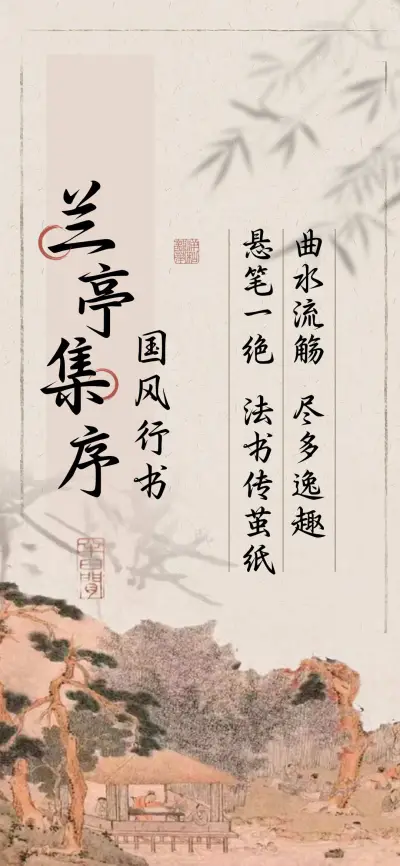 兰亭集序
国风行书
曲水流觞 尽多逸趣
悬笔一绝 法书传茧纸